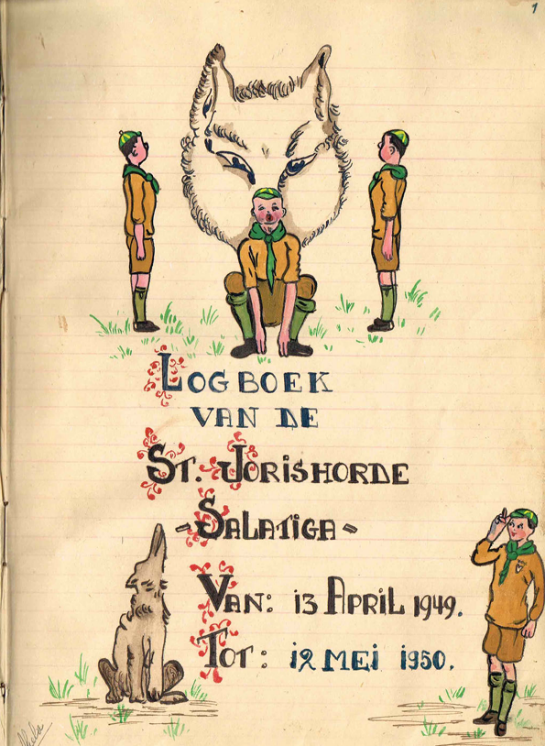 1
LOGBOEK
VAN DE
ST. JORISHORDE
- SALATIGA -
VAN: 13 APRIL 1949.
TOT: 12 MEI 1950.